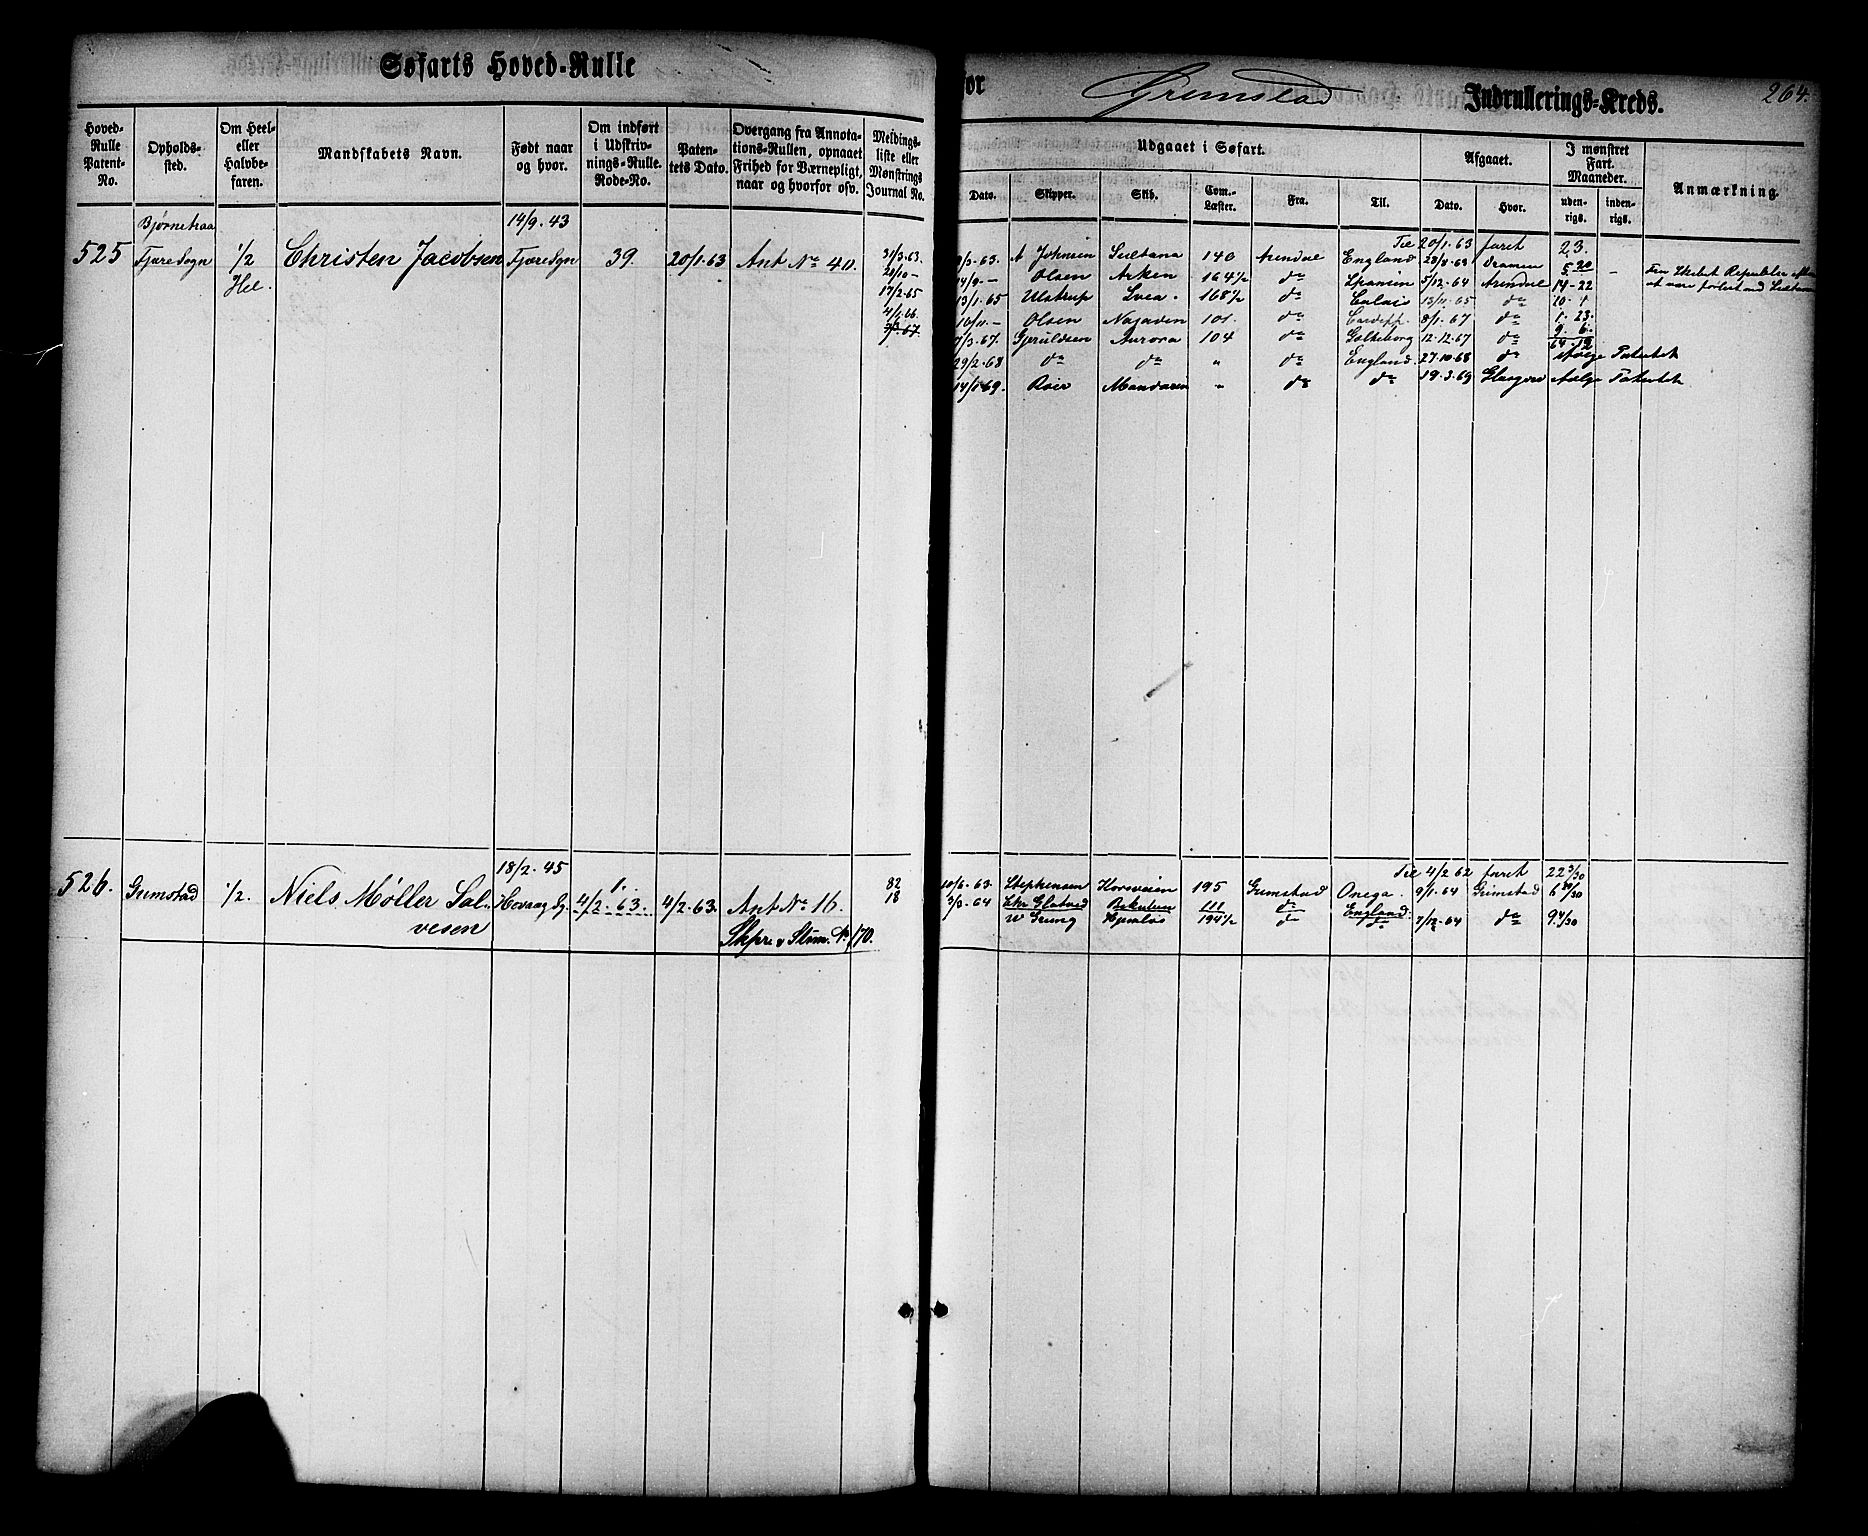 Søfarts Hoved-Rulle for Grimstad Indrullerings-Kreds. 264.
Hoved-Rulle Patent-No. Opholds-sted. Om Heel- eller Halvbe-faren. Mandskabets Navn. Født naar og hvor. Om indført i Udskriv-nings-Rulle. Rode-No. Paten-tets Dato. Overgang fra Annota-tions-Rullen, opnaaet Frihed for Værnepligt, naar og hvorfor osv. Meldings-liste eller Mønstrings Journal No.
Udgaaet i Søfart. Afgaaet. I mønstret Fart. Maaneder. Anmærkning.
Dato. Skipper. Skib. Com.-Læster. Fra. Til. Dato. Hvor. uden-rigs. inden-rigs.
Bjørnetraa 14/9. 43
525 Fjære Sogn 1/2 Christen Jacobsen Fjære Sgn 39. 20/1. 63 Ant No 40.
Hel.
31/3.63.
20/10 -
17/2.65
4/1.66
Til 20/1. 63 faret 23.
9/3. 63. A Johnsen Sultana 140 Arendal England 28/8. 63 Dramen 5 - 20
14/9 - Olsen Arken 164 1/2 do Spanien 5/12. 64 Arendal 14 - 22
13/1. 65 Ulstrup Svea. 168 1/2 do Calais 13/11. 65 do 10. 1
16/11 - Olsen Najaden 101. do Cardiff 8/1. 67 do 1. 23.
7/3. 67. Gjeruldsen Aurora 104 do Gøtheborg 12. 12. 67 do 9. 6.
29/2. 68 do do " do England 27. 10. 68 do ifølge Patentet
14/1 69. Roer Mandarin " do do 19. 3. 69 Glasgow ifølge Patentet
18/2. 45
526. Grimstad 1/2. Niels Møller Sal- Høvaag Sg. 1. 4/2. 63. 4/2. 63. Ant No 16. 82
vesen 18
Skpr & Strm. No 170.
Til 4/2 62 faret
10/6. 63. Stephensen Korsveien 195 Grimstad Onega. 9/1. 64 Grimstad
3/3. 64 Chr Glatved 111 do England.
W Grung Hjemløs 194 1/2 do do 7/12. 64 do 9 4/30